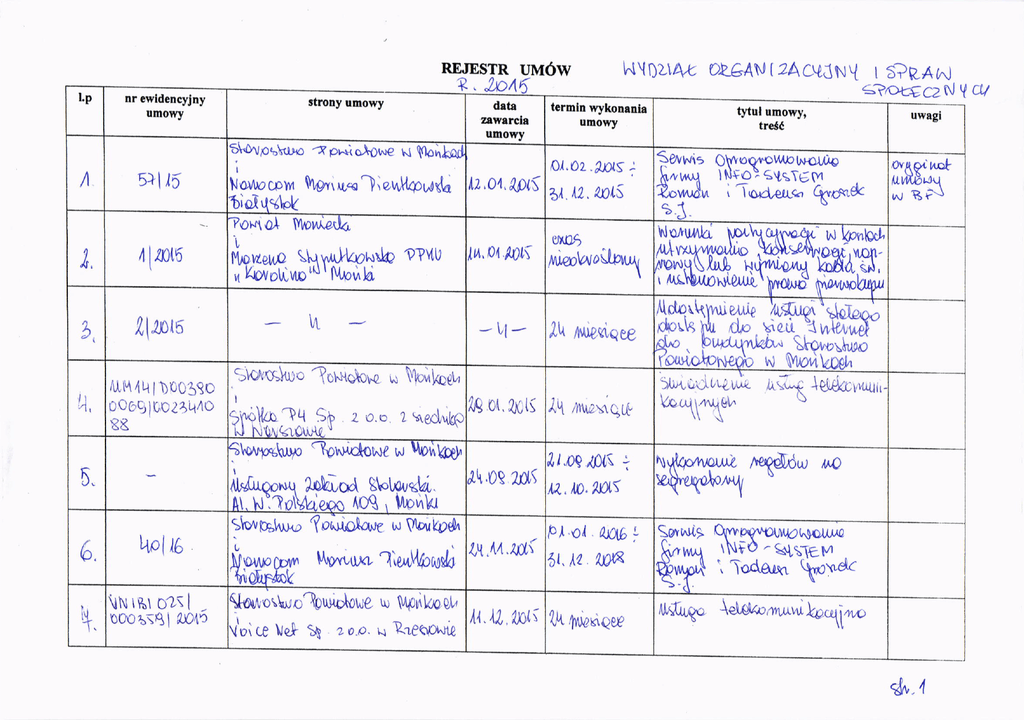 REJESTR UMÓW
R. 2015
WYDZIAŁ ORGANIZACYJNY I SPRAW
SPOŁECZNYCH
l.p
nr ewidencyjny
umowy
strony umowy
data
zawarcia
umowy
termin wykonania
umowy
tytuł umowy,
treść
uwagi
1.
57/15
Starostwo Powiatowe w Mońkach
i
Nanocom Mariusz Pieńkowski
Białystok
12.01.2015
01.02.2015 ÷
31.12.2015
Serwis Oprogramowania
firmy INFO-SYSTEM
Roman i Tadeusz Groszek
S.J.
oryginał
umowy
w BF
2.
1/2015
Powiat Moniecki
i
Marzena Stypułkowska DPMU
"Karolina" Mońki
14.01.2015
czas
nieokreślony
Warunki partycypacji w kosztach
utrzymania, konserwacji, nap-
rawy lub wymiany kabla św.
i ustanowienie prawa pierwokupu
3.
2/2015
— 11 —
— 11 —
24 miesiące
Udostępnienie usługi stałego
dostępu do sieci Internet
do budynków Starostwa
Powiatowego w Mońkach
4.
UM14/D00390
0069/0023410
88
Starostwo Powiatowe w Mońkach
i
Spółka P4 Sp. z o.o. z siedzibą
w Warszawie
29.01.2015
24 miesiące
Świadczenie usług telekomuni-
kacyjnych
5.
-
Starostwo Powiatowe w Mońkach
i
Usługowy Zakład Stolarski
Al. W. Polskiego 109, Mońki
24.08.2015
21.08.2015 ÷
12.10.2015
Wykonanie regałów na
segregatory
6.
40/16
Starostwo Powiatowe w Mońkach
i
Nanocom Mariusz Pieńkowski
Białystok
24.11.2015
01.01.2016 ÷
31.12.2018
Serwis Oprogramowania
firmy INFO-SYSTEM
Roman i Tadeusz Groszek
S.J.
7.
VNIBI 025/
000359/2015
Starostwo Powiatowe w Mońkach
i
Voice Net Sp. z o.o. w Rzeszowie
11.12.2015
24 miesiące
Usługa telekomunikacyjna
str. 1